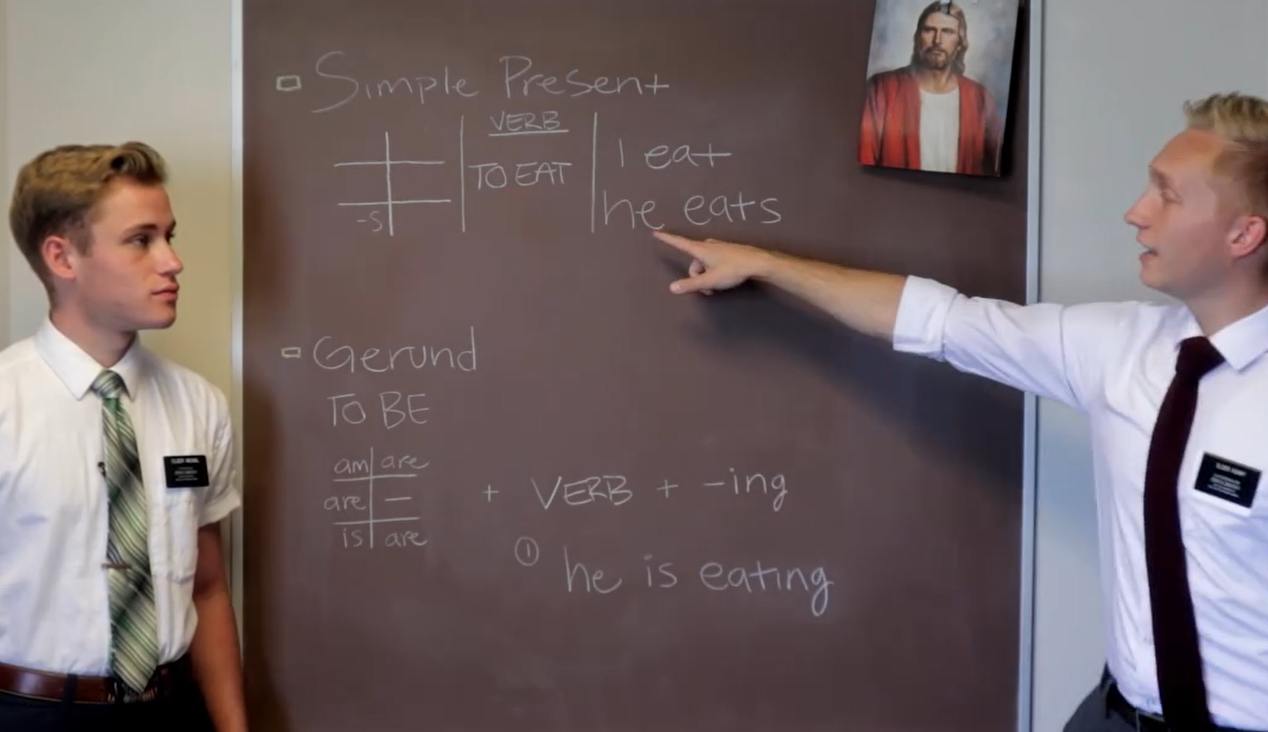 Simple Present
VERB
TO EAT
I eat
-s
he eats
Gerund
TO BE
am are
are —
is are
+ VERB + -ing
① he is eating